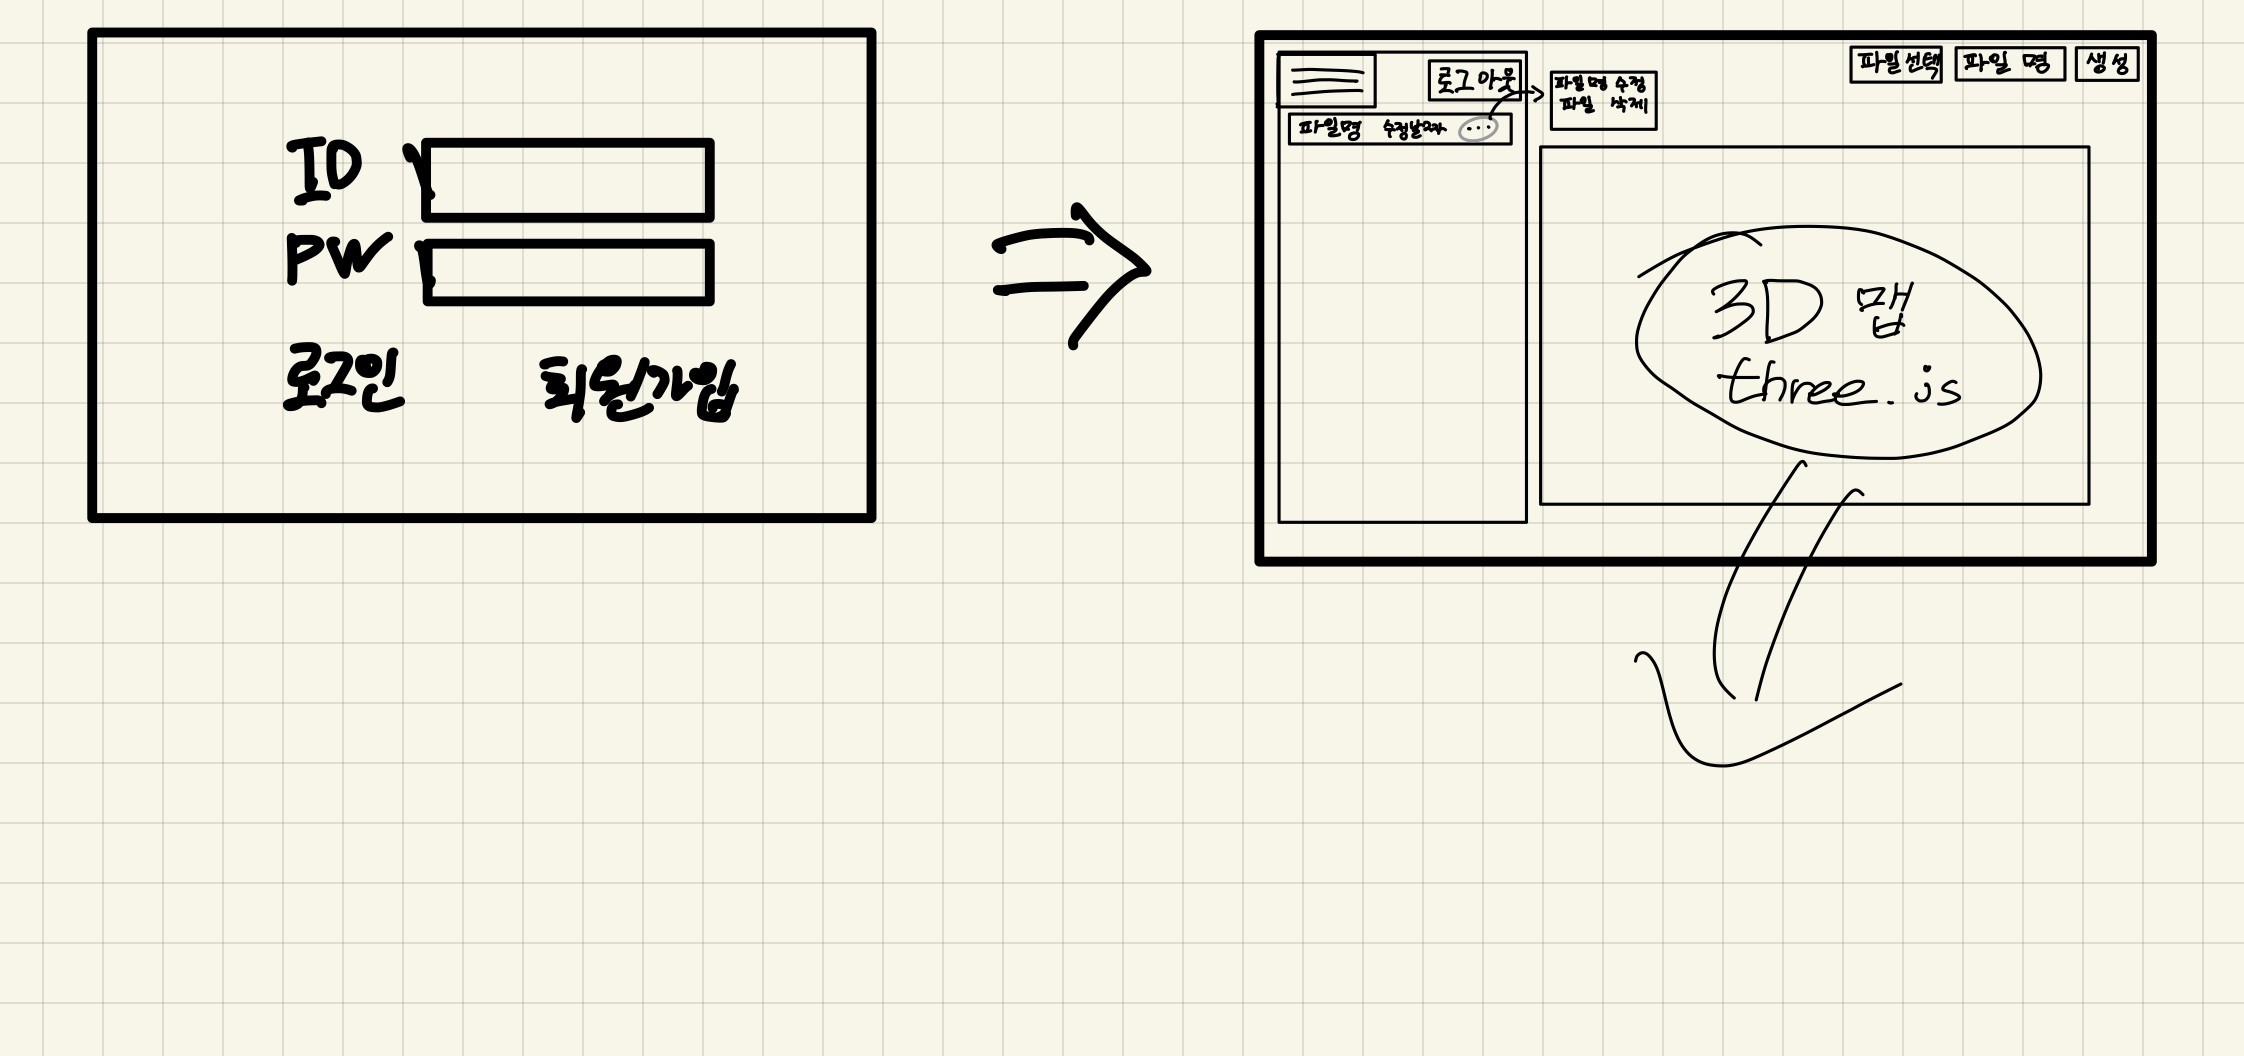 ID
PW
로그인 회원가입
로그아웃
파일명 수정날짜 ...
파일명 수정
파일 삭제
파일선택 파일 명 생성
3D 맵
three.js